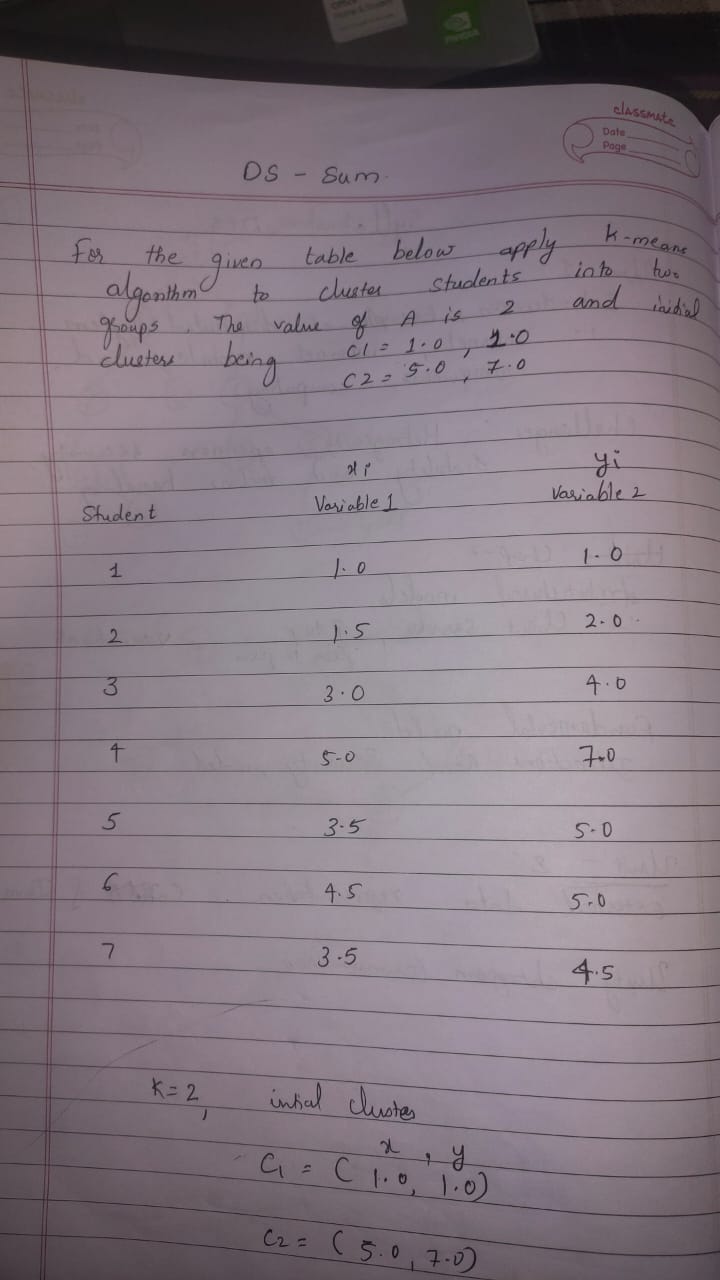 classmate
Date
Page
DS - Sum.
For the given table below apply K-means
algorithm to cluster students into two
groups. The value of A is 2 and initial
clusters being C1 = 1.0, 1.0
C2 = 5.0, 7.0
xi yi
Student Variable 1 Variable 2
1 1.0 1.0
2 1.5 2.0
3 3.0 4.0
4 5.0 7.0
5 3.5 5.0
6 4.5 5.0
7 3.5 4.5
K=2, intial cluster
x, y
C1 = (1.0, 1.0)
C2 = (5.0, 7.0)